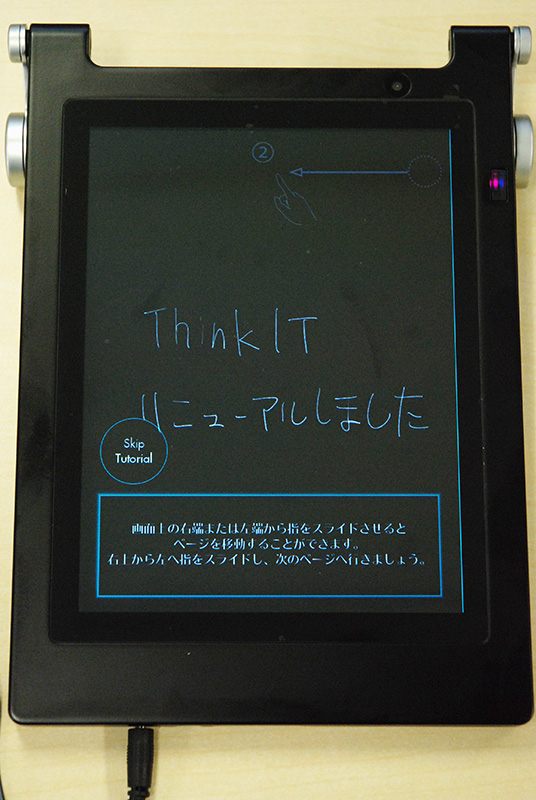 ②
Think IT
リニューアルしました
Skip
Tutorial
画面上の右端または左端から指をスライドさせると
ページを移動することができます。
右上から左へ指をスライドし、次のページへ行きましょう。